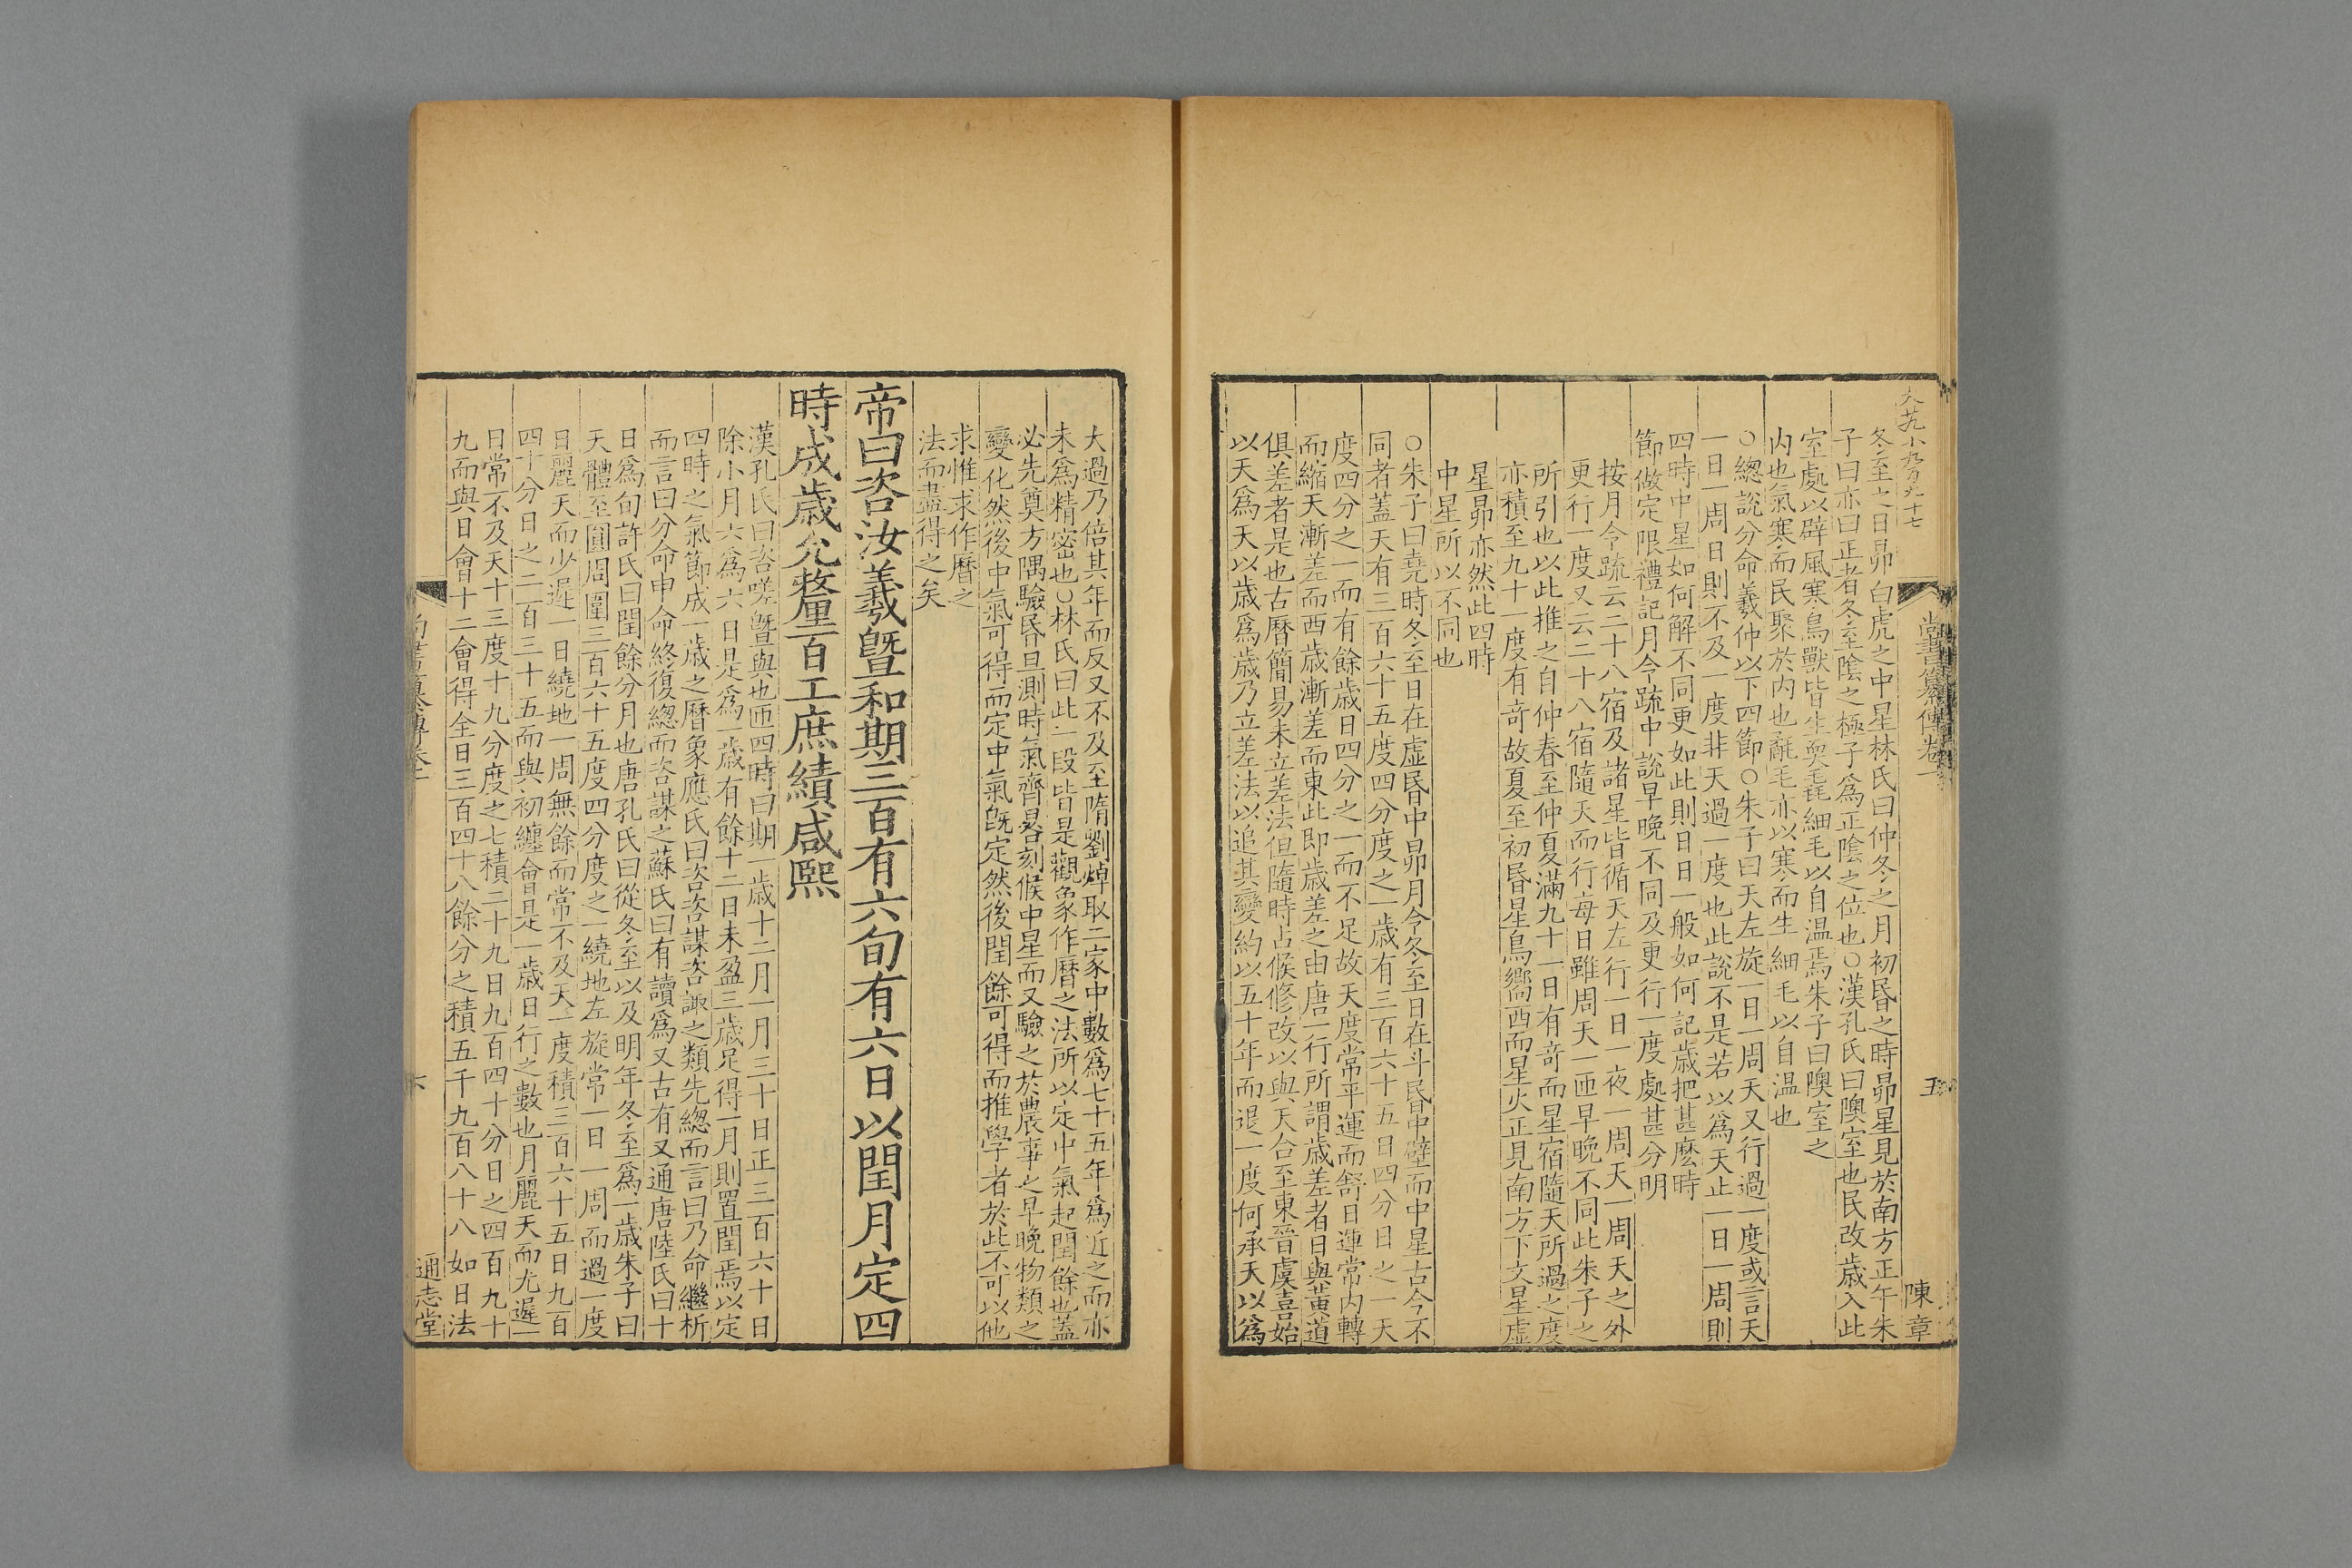 尚書纂傳卷一
五
陳章
冬至之日昴白虎之中星林氏曰仲冬之月初昬之時昴星見於南方正午朱
子曰亦曰正者冬至隂之極子爲正隂之位也○漢孔氏曰隩室也民改歲入此
室處以辟風寒鳥獸皆生耎毳細毛以自温焉朱子曰隩室之
内也氣寒而民聚於内也氄毛亦以寒而生細毛以自温也
○緫説分命羲仲以下四節○朱子曰天左旋一日一周天又行過一度或言天
一日一周日則不及一度非天過一度也此説不是若以爲天止一日一周則
四時中星如何解不同更如此則日日一般如何記歲把甚麽時
節做定限禮記月令疏中説早晚不同及更行一度處甚分明
按月令疏云二十八宿及諸星皆循天左行一日一夜一周天一周天之外
更行一度又云二十八宿隨天而行每日雖周天一匝早晚不同此朱子之
所引也以此推之自仲春至仲夏滿九十一日有竒而星宿隨天所過之度
亦積至九十一度有竒故夏至初昬星鳥嚮西而星火正見南方下文星虚
星昴亦然此四時
中星所以不同也
○朱子曰堯時冬至日在虚昬中昴月令冬至日在斗昬中壁而中星古今不
同者蓋天有三百六十五度四分度之一歲有三百六十五日四分日之一天
度四分之一而有餘歲日四分之一而不足故天度常平運而舒日運常内轉
而縮天漸差而西歲漸差而東此即歲差之由唐一行所謂歲差者日與黃道
俱差者是也古曆簡易未立差法但隨時占候修改以與天合至東晉虞喜始
以天爲天以歲爲歲乃立差法以追其變約以五十年而退一度何承天以爲
大過乃倍其年而反又不及至隋劉焯取二家中數爲七十五年爲近之而亦
未爲精密也○林氏曰此一段皆是觀象作曆之法所以定中氣起閏餘也蓋
必先奠方隅驗昬旦測時氣齊晷刻候中星而又驗之於農事之早晚物類之
變化然後中氣可得而定中氣旣定然後閏餘可得而推學者於此不可以他
求惟求作曆之
法而盡得之矣
帝曰咨汝羲曁和期三百有六旬有六日以閏月定四
時成歲允釐百工庶績咸熙
漢孔氏曰咨嗟曁與也匝四時曰期一歲十二月一月三十日正三百六十日
除小月六爲六日是爲一歲有餘十二日未盈三歲足得一月則置閏焉以定
四時之氣節成一歲之曆象應氏曰咨咨謀咨諏之類先緫而言曰乃命繼析
而言曰分命申命終復緫而咨謀之蘇氏曰有讀爲又古有又通唐陸氏曰十
日爲旬許氏曰閏餘分月也唐孔氏曰從冬至以及明年冬至爲一歲朱子曰
天體至圓周圍三百六十五度四分度之一繞地左旋常一日一周而過一度
日麗天而少遲一日繞地一周無餘而常不及天一度積三百六十五日九百
四十分日之二百三十五而與初纏會是一歲日行之數也月麗天而尤遲一
日常不及天十三度十九分度之七積二十九日九百四十分日之四百九十
九而與日會十二會得全日三百四十八餘分之積五千九百八十八如日法
六
通志堂